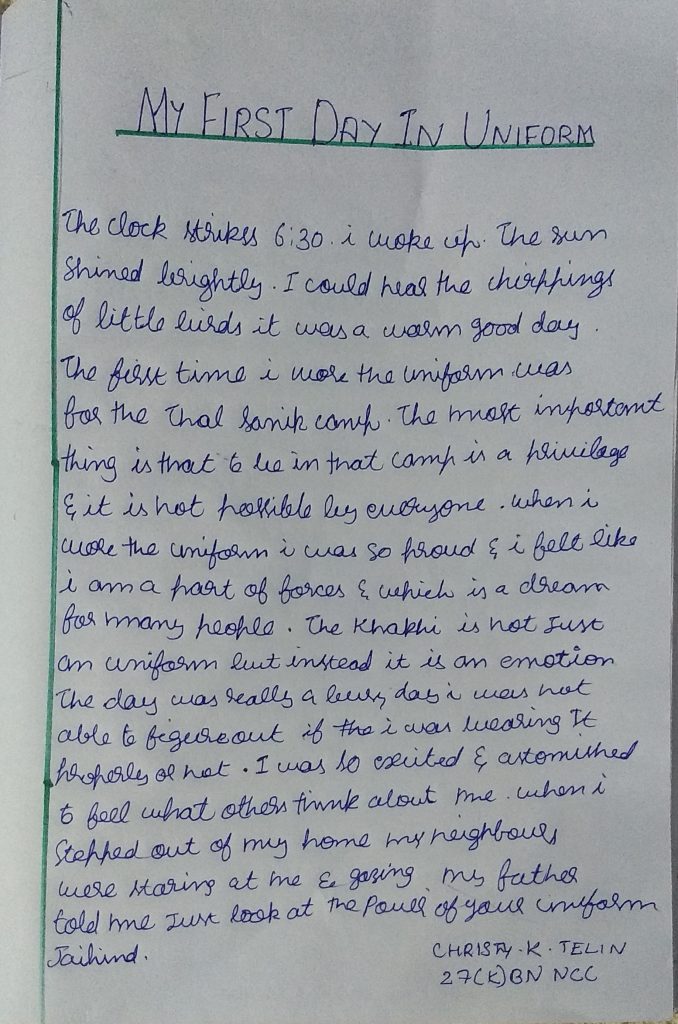 MY FIRST DAY IN UNIFORM
The clock strikes 6:30. i woke up. The sun
Shined brightly. I could hear the chirppings
of little birds it was a warm good day.
The first time i wore the uniform was
for the Thal Sanik camp. The most important
thing is that to be in that camp is a privilage
& it is not possible by everyone. when i
wore the uniform i was so proud & i felt like
i am a part of forces & which is a dream
for many people. The Khakhi is not Just
an uniform but instead it is an emotion
The day was really a busy day i was not
able to figureout if the i was wearing It
properly or not. I was so excited & astonished
to feel what others think about me. when i
Stepped out of my home my neighbours
were staring at me & gazing my father
told me Just look at the Power of your uniform
Jaihind.
CHRISTY.K.TELIN
27(K)BN NCC